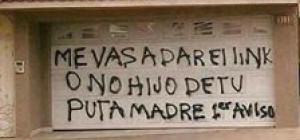 ME VAS A DAR El lINK
O NO HIJO DE TU
PUTA MADRE 1er AVISO